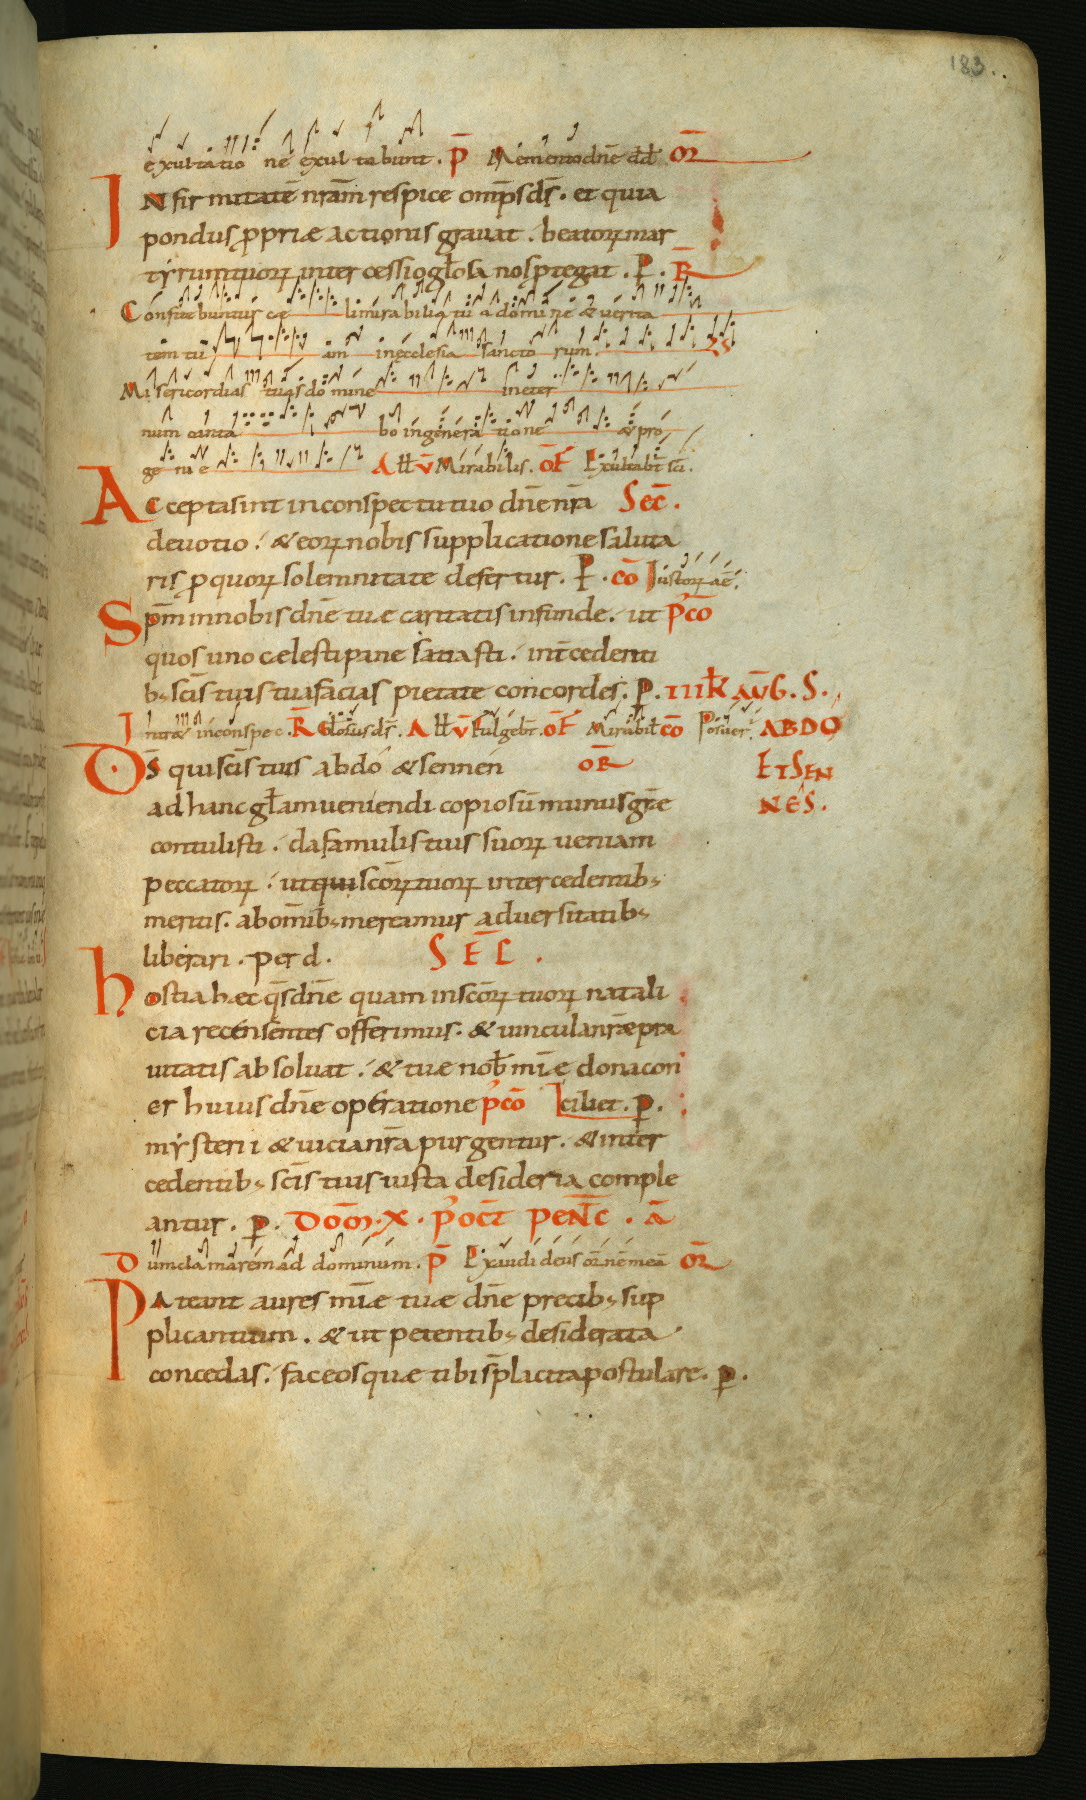 183
exultatio ne exultabunt. P̄ Memento dn̄e dd̄ OR̄
INfirmitatē nr̄am respice omp̄s ds̄. et quia
pondus ꝓpriæ actionis grauat. beatoꝝ mar
tyrum tuoꝝ intercessio gl̄osa nos ꝓtegat. P. R̄
Confitebuntur cæ li mirabilia tua domine & uerita
tem tu am in ęcclesia sancto rum. Vs
Misericordias tuas domine in eter
num canta bo in genera tione & pro
ge ni e All̄ V̄ Mirabilis. OF̄ Exultab̄t sc̄i.
ACcepta sint in conspectu tuo dn̄e nr̄a SEC̄.
deuotio. & eoꝝ nobis supplicatione saluta
ris ꝓ quoꝝ solemnitate defertur. P. CŌ Iustoꝝ aē.
Sp̄m in nobis dn̄e tuæ caritatis infunde. ut P̄CŌ
quos uno cælesti pane satiasti. int̄cedenti
b; sc̄is tuis tua facias pietate concordes. P. IIIK̄ AUG. S.
Intræ in conspec. R̄ Gloriosus ds̄. All̄ V̄ Fulgeb̄t. OF̄ Mirabil̄ CŌ Posuer̄. ABDO
DS̄ qui sc̄is tuis abdo & sennen OR̄ ET SEN
ad hanc gl̄am ueniendi copiosū munus gr̄e NES.
contulisti. da famulis tuis suoꝝ ueniam
peccatoꝝ. ut qui sc̄oꝝ tuoꝝ intercedentib;
meritis. ab om̄ib; mereamur aduersitatib;
liberari. per d. SEC̄.
hostia hec q̄s dn̄e quam in sc̄oꝝ tuoꝝ natali
cia recensentes offerimus. & uincula nr̄æ pra
uitatis absoluat. & tuæ nob̄ mīe dona con
er huius dn̄e operatione P̄CŌ Iciliet. P.
mysterii & uicia nr̄a purgentur. & inter
cedentib; sc̄is tuis iusta desideria comple
antur. P. DOM̄. X. P̄ OCT̄ PENT̄C. Ā
Dum clamarem ad dominum. P̄ Exaudi deus or̄nem meā OR̄
PAteant aures mīæ tuæ dn̄e precib; sup
plicantium. & ut petentib; desiderata
concedas. fac eos quæ tibi s̄ placita postulare. P.